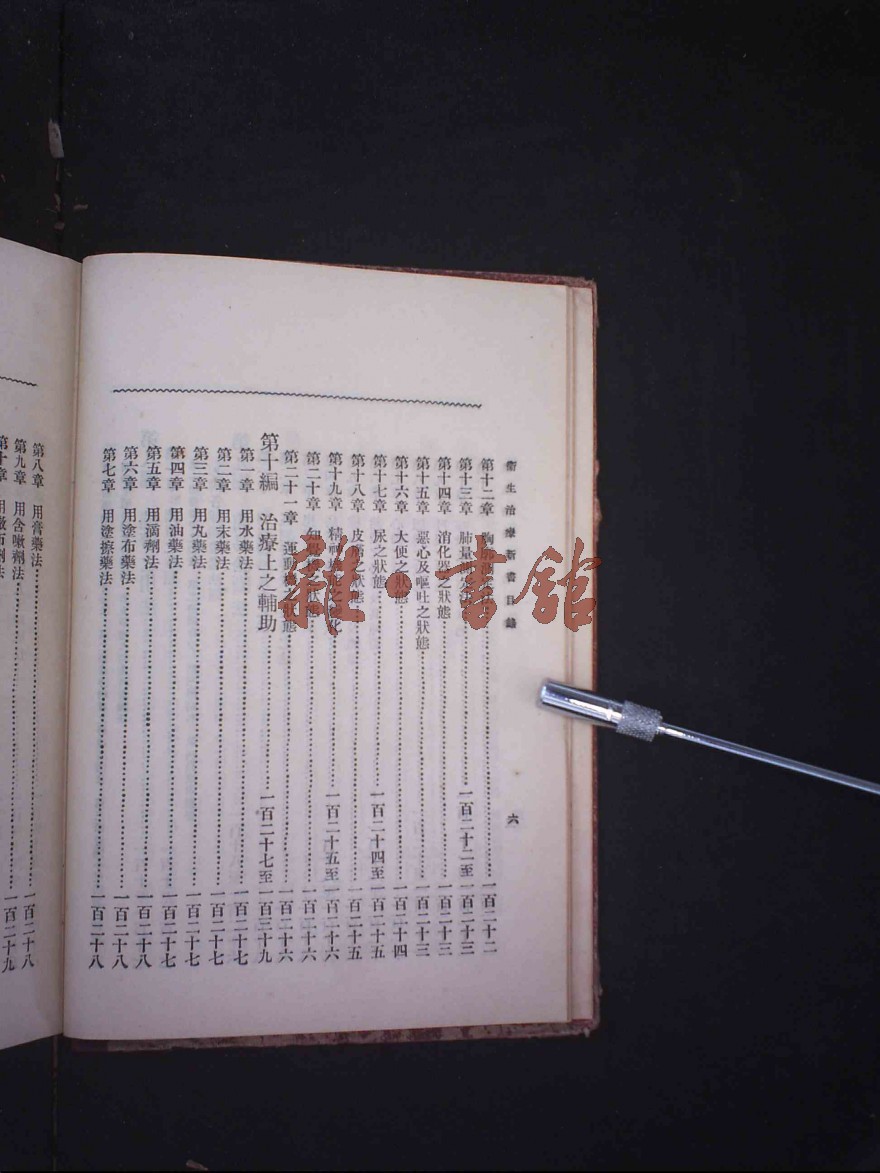 衞生治療新書目錄
六
第十二章 胸⋯⋯一百二十二
第十三章 肺量⋯⋯一百二十二至一百二十三
第十四章 消化器之狀態⋯⋯一百二十三
第十五章 惡心及嘔吐之狀態⋯⋯一百二十三
第十六章 大便之狀態⋯⋯一百二十四
第十七章 尿之狀態⋯⋯一百二十四至一百二十五
第十八章 皮膚之狀態⋯⋯一百二十五
第十九章 精神⋯⋯一百二十五至一百二十六
第二十章 知覺⋯⋯狀態⋯⋯一百二十六
第二十一章 運動⋯⋯狀態⋯⋯一百二十六
第十編 治療上之輔助⋯⋯一百二十七至一百三十九
第一章 用水藥法⋯⋯一百二十七
第二章 用末藥法⋯⋯一百二十七
第三章 用丸藥法⋯⋯一百二十七
第四章 用油藥法⋯⋯一百二十七
第五章 用滴劑法⋯⋯一百二十八
第六章 用塗布藥法⋯⋯一百二十八
第七章 用塗擦藥法⋯⋯一百二十八
第八章 用膏藥法⋯⋯一百二十八
第九章 用含嗽劑法⋯⋯一百二十八
第十章 用⋯⋯劑法⋯⋯一百二十九
雜·書館